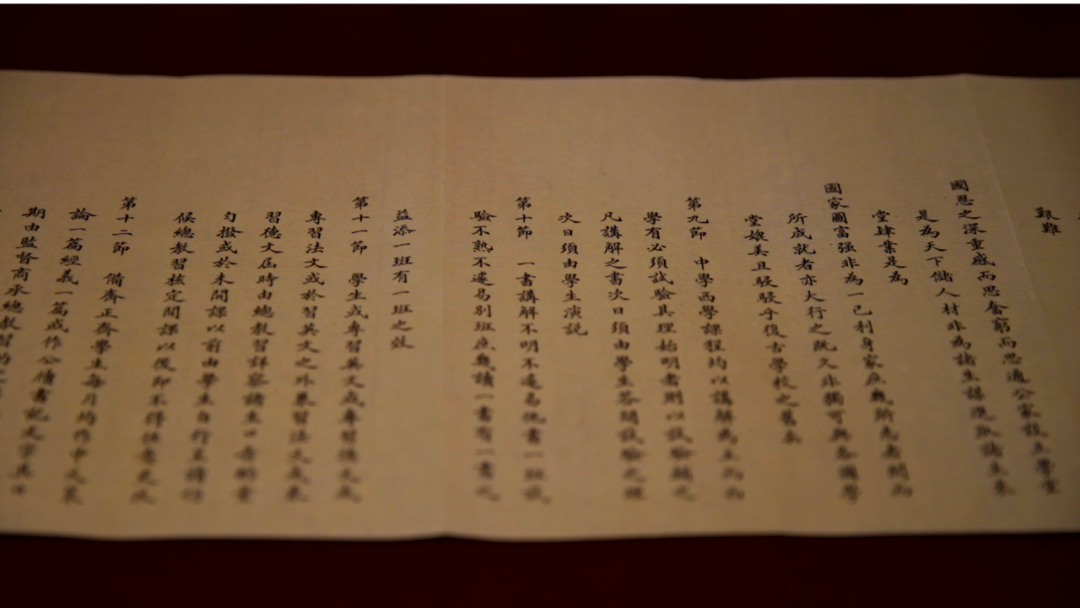 艱難
國恩之深重感而思奮窮而思通公家設立學堂
是為天下儲人材非為諸生謀進取諸生來
堂肄業是為
國家圖富强非為一己利身家庶幾所為者闊而
所成就者亦大行之既久非獨可與各國學
堂媲美且駸駸乎復古學校之舊矣
第九節 中學西學課程均以講解為主而西
學有必須試驗其理始明者則以試驗輔之
凡講解之書次日須由學生答問試驗之理
次日須由學生演說
第十節 一書講解不明不遽易他書一班試
驗不熟不遽易別班庶幾讀一書有一書之
益添一班有一班之效
第十一節 學生或專習英文或專習德文或
專習法文或於習英文之外兼習法文或兼
習德文屆時由總教習詳察諸生口音酌量
勻撥或於未開課以前由學生自行呈請
候總教習核定開課以後即不得任意更改
第十二節 備齋正齋學生每月均作中文
論一篇經義一篇或作公牘書記
期由監督商承總教習